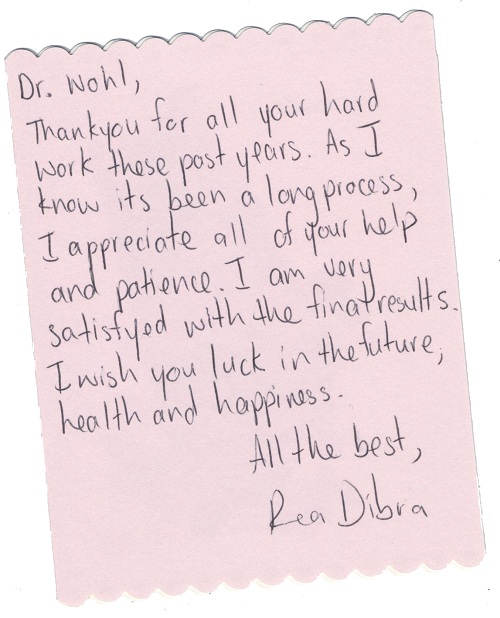 Dr. Wohl,
Thankyou for all your hard
work these past years. As I
know its been a long process,
I appreciate all of your help
and patience. I am very
satisfyed with the final results.
I wish you luck in the future,
health and happiness.
All the best,
Rea Dibra